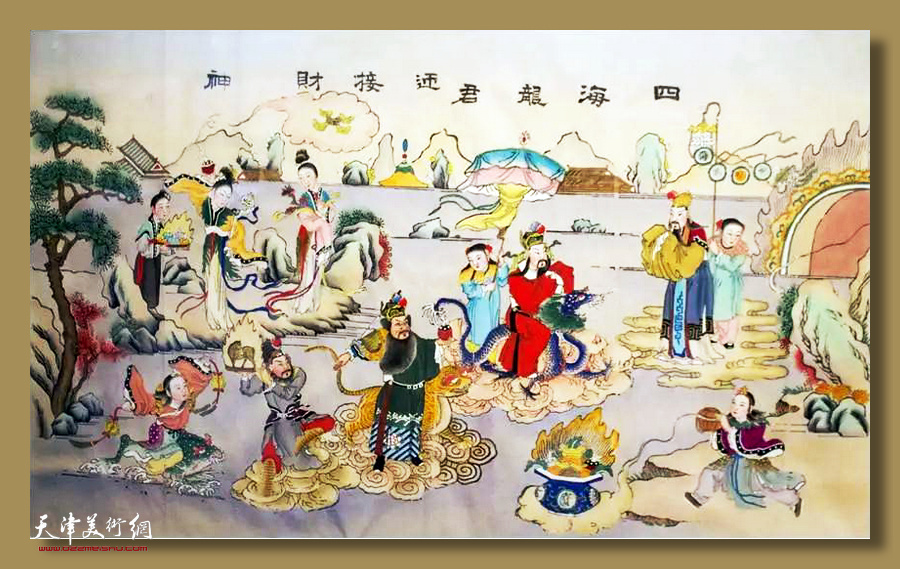 四海龍君迊接財神
天津美術網
www.022meishu.com